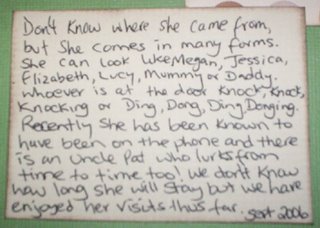 Don't know where she came from,
but she comes in many forms.
She can look like Megan, Jessica,
Elizabeth, Lucy, Mummy or Daddy.
whoever is at the door Knock, Knock,
Knocking or Ding, Dong, Ding, Donging.
Recently she has been known to
have been on the phone and there
is an Uncle Pat who lurks from
time to time too! We don't know
how long she will stay but we have
enjoyed her visits thus far. Sept 2006